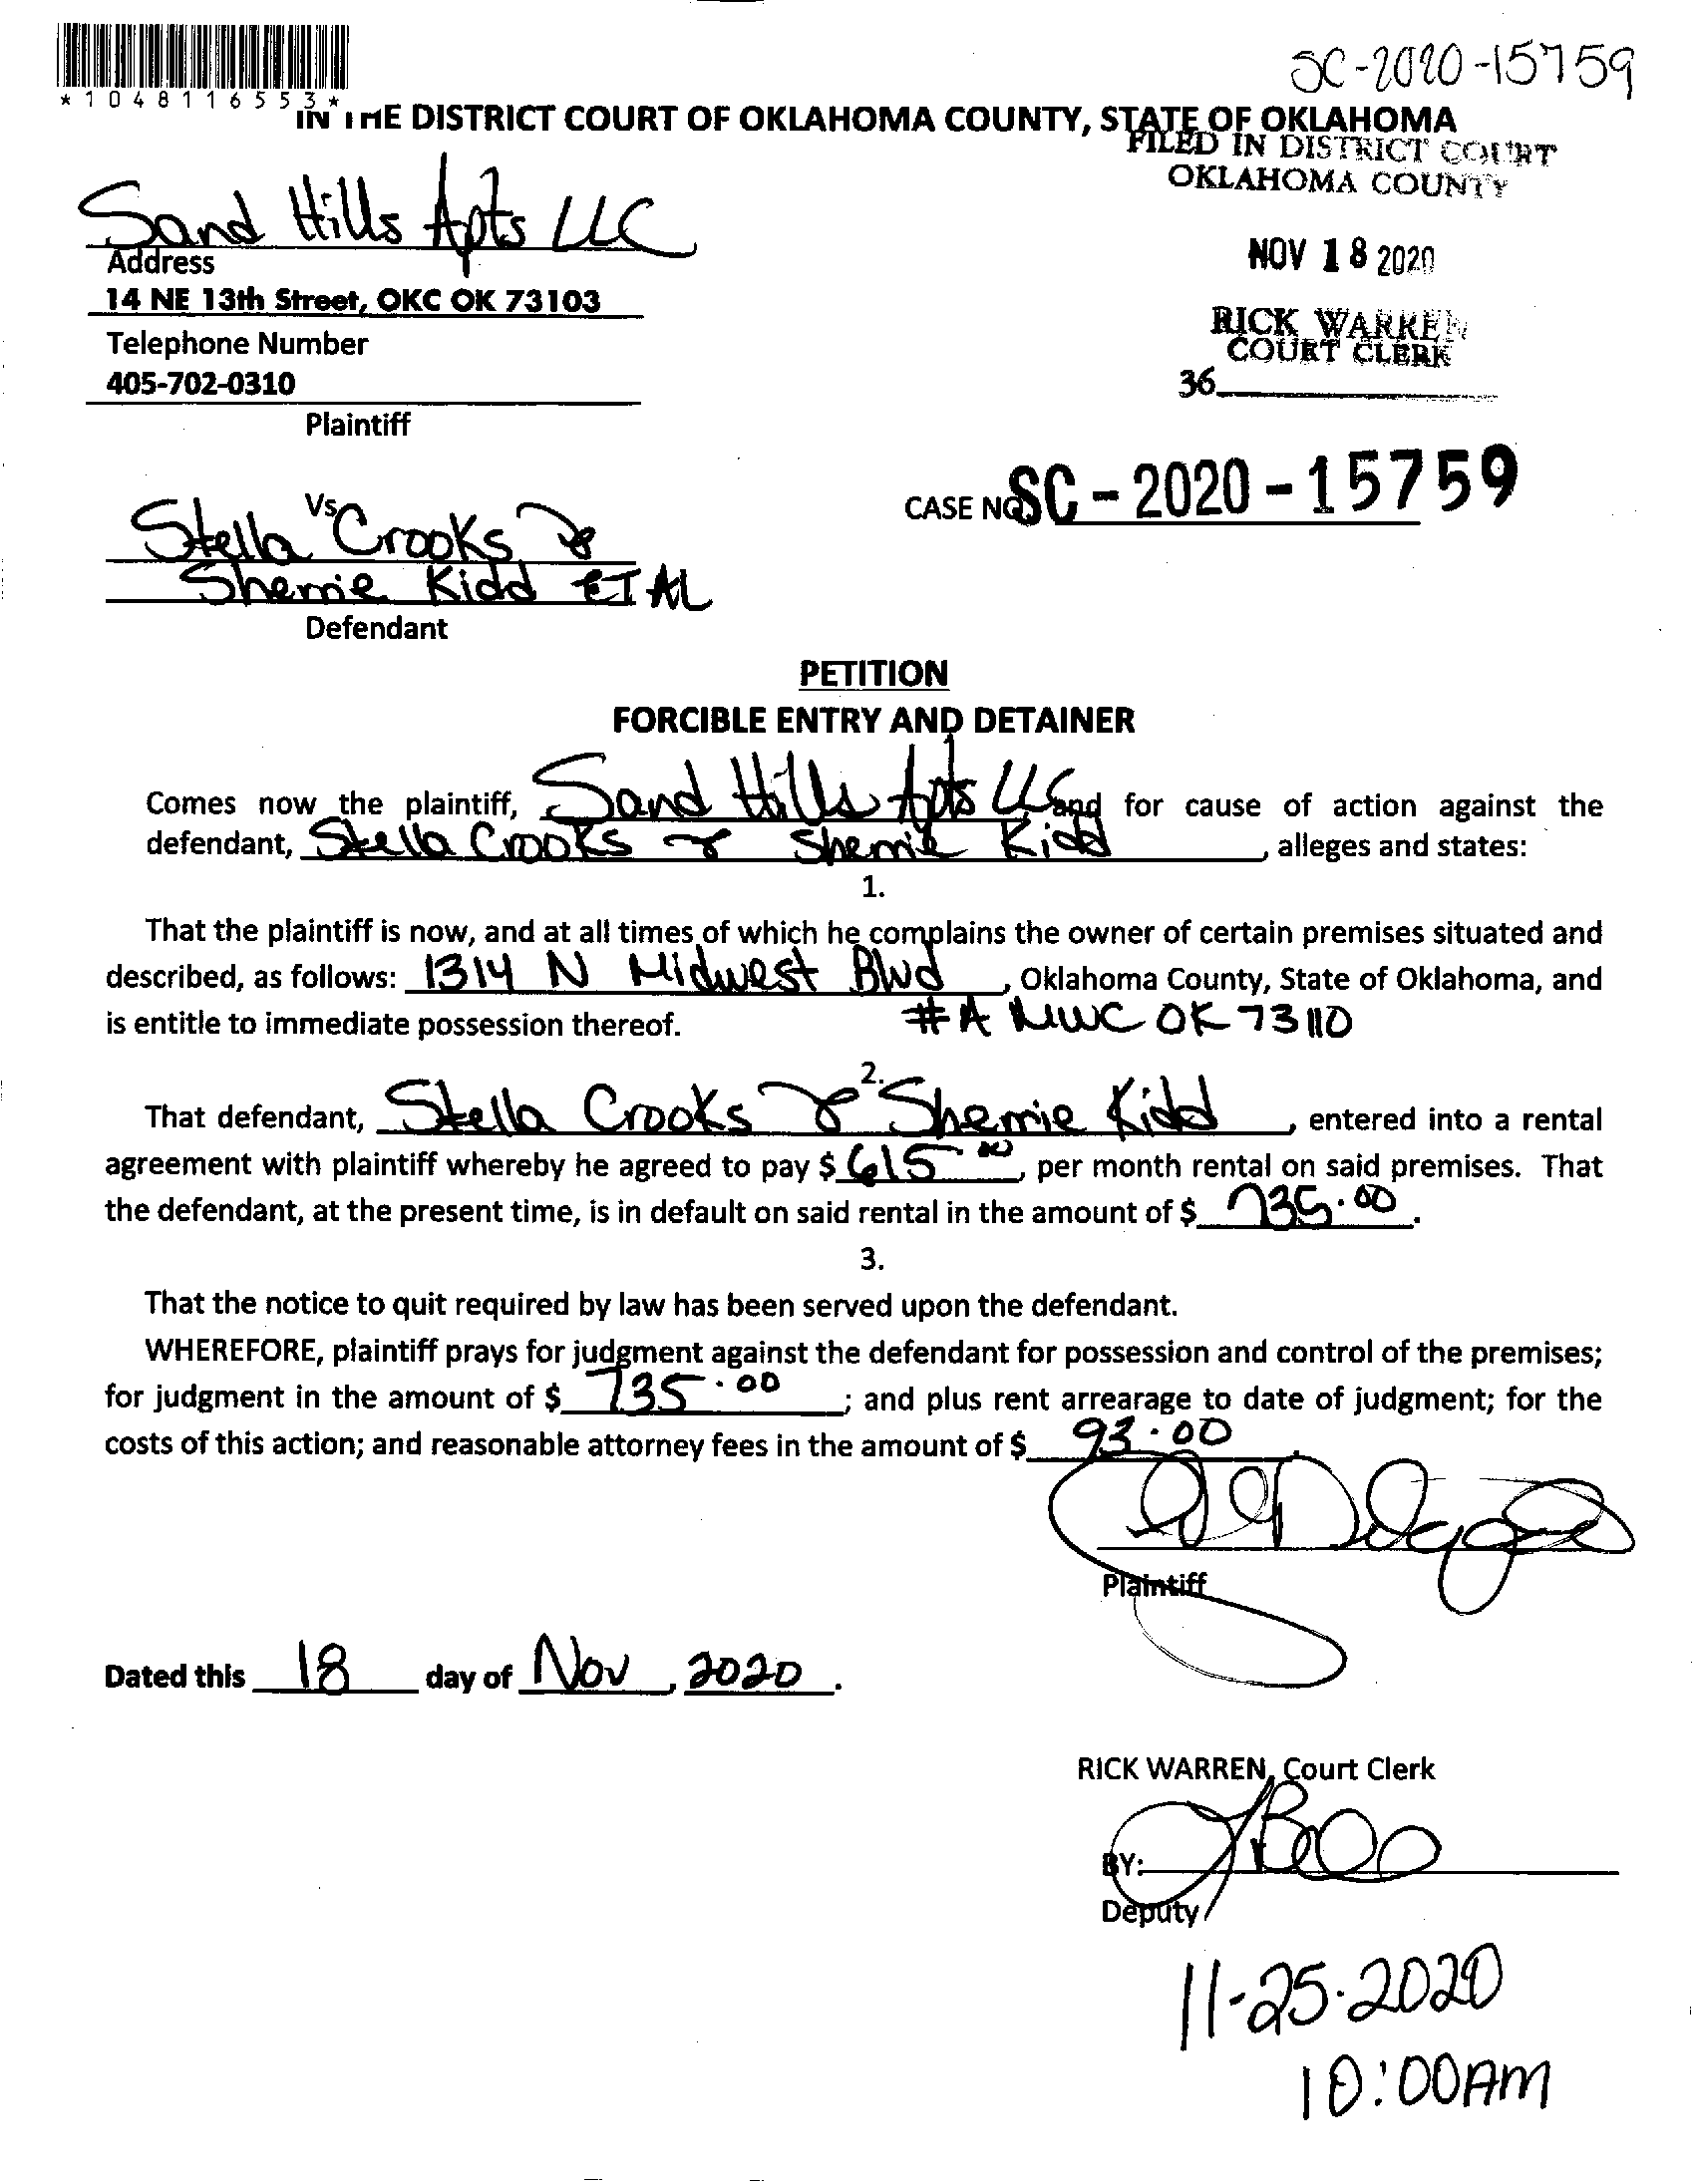 SC-2020-15759
*1048116553*
IN THE DISTRICT COURT OF OKLAHOMA COUNTY, STATE OF OKLAHOMA
FILED IN DISTRICT COURT
OKLAHOMA COUNTY
Sand Hills Apts LLC
Address
NOV 18 2020
14 NE 13th Street, OKC OK 73103
RICK WARREN
COURT CLERK
Telephone Number
405-702-0310
36
Plaintiff
CASE NO. SC-2020-15759
Vs
Stella Crooks &
Sherrie Kidd ET AL
Defendant
PETITION
FORCIBLE ENTRY AND DETAINER
Comes now the plaintiff, Sand Hills Apts LLC and for cause of action against the
defendant, Stella Crooks & Sherrie Kidd, alleges and states:
1.
That the plaintiff is now, and at all times of which he complains the owner of certain premises situated and
described, as follows: 1314 N Midwest Blvd, Oklahoma County, State of Oklahoma, and
is entitle to immediate possession thereof. #A MWC OK 73110
2.
That defendant, Stella Crooks & Sherrie Kidd, entered into a rental
agreement with plaintiff whereby he agreed to pay $ 615 00, per month rental on said premises. That
the defendant, at the present time, is in default on said rental in the amount of $ 735.00.
3.
That the notice to quit required by law has been served upon the defendant.
WHEREFORE, plaintiff prays for judgment against the defendant for possession and control of the premises;
for judgment in the amount of $ 735.00; and plus rent arrearage to date of judgment; for the
costs of this action; and reasonable attorney fees in the amount of $ 93.00.
Plaintiff
Dated this 18 day of Nov, 2020.
RICK WARREN, Court Clerk
BY:
Deputy
11-25-2020
10:00AM